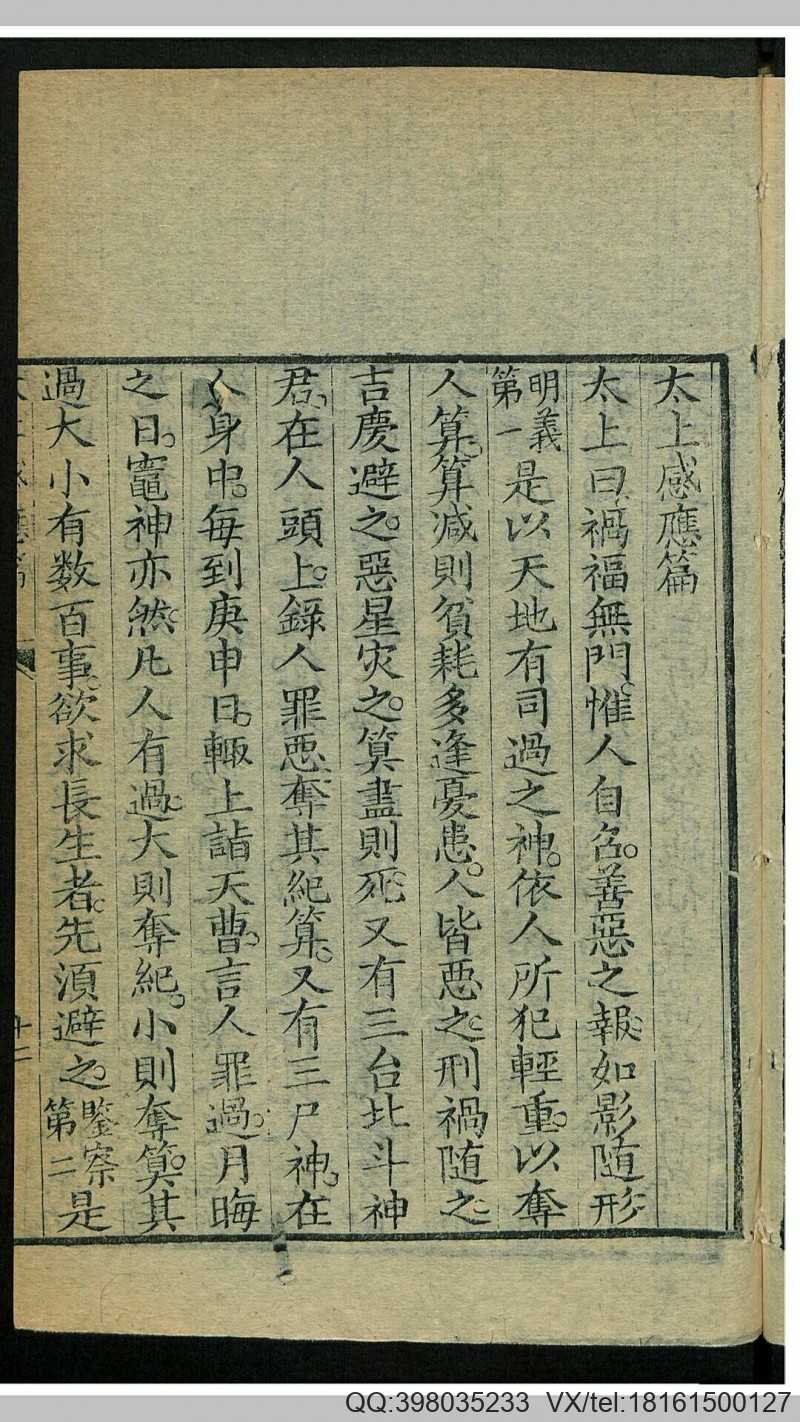 太上感應篇
太上曰禍福無門。惟人自召。善惡之報。如影隨形
明義
第一
是以天地有司過之神。依人所犯輕重。以奪
人算。算减則貧耗。多逢憂患。人皆惡之。刑禍隨之。
吉慶避之。惡星灾之。算盡則死。又有三台北斗神
君。在人頭上。錄人罪惡。奪其紀算。又有三尸神。在
人身中。每到庚申日。輙上詣天曹。言人罪過。月晦
之日。竈神亦然。凡人有過。大則奪紀。小則奪算。其
過大小有数百事。欲求長生者。先須避之。
鑒察
第二
是
十二
QQ:398035233 VX/tel:18161500127